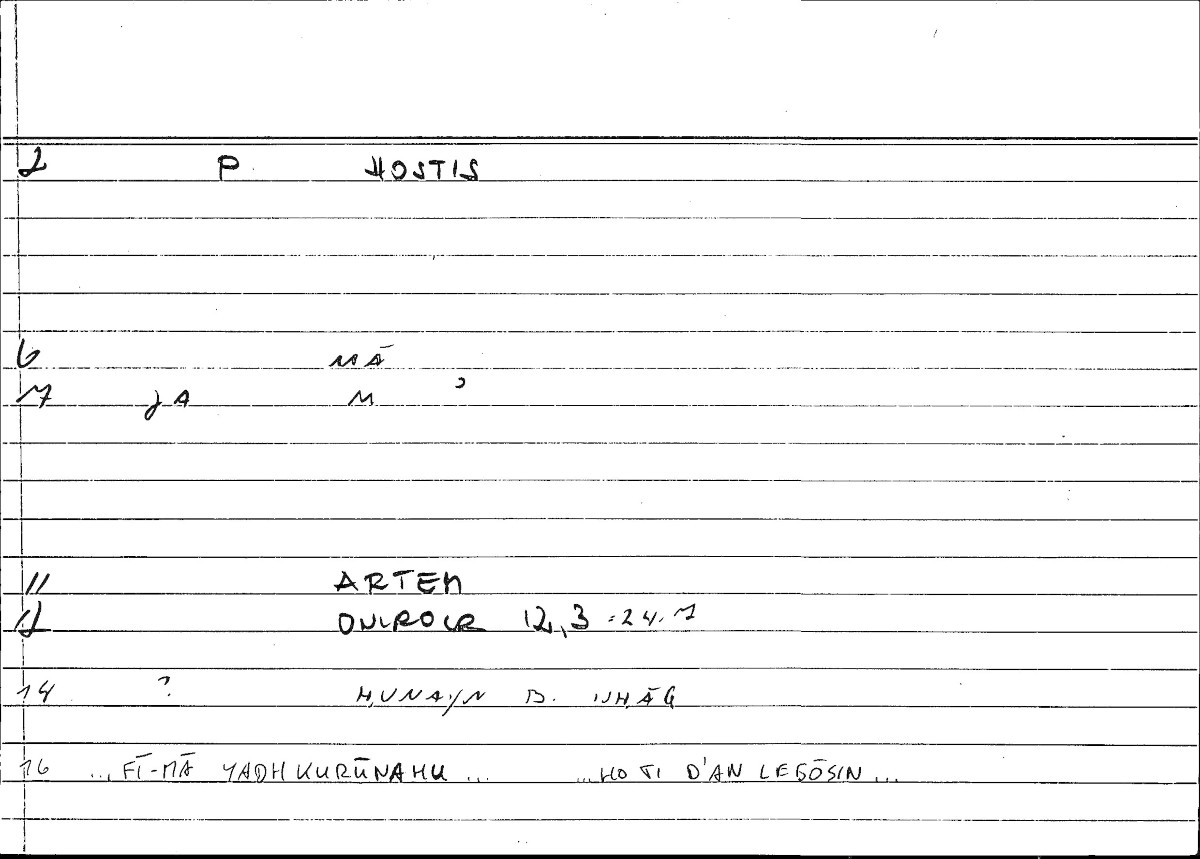 2 P HOSTIS
6 MĀ
7 JA M ʾ
11 ARTEM
12 ONIROCR 12,3 = 24.7
14 ? ḤUNAYN B. ISḤĀQ
16 ... FĪ-MĀ YADHKURŪNAHU ... ... HO TI D'AN LEGŌSIN ...